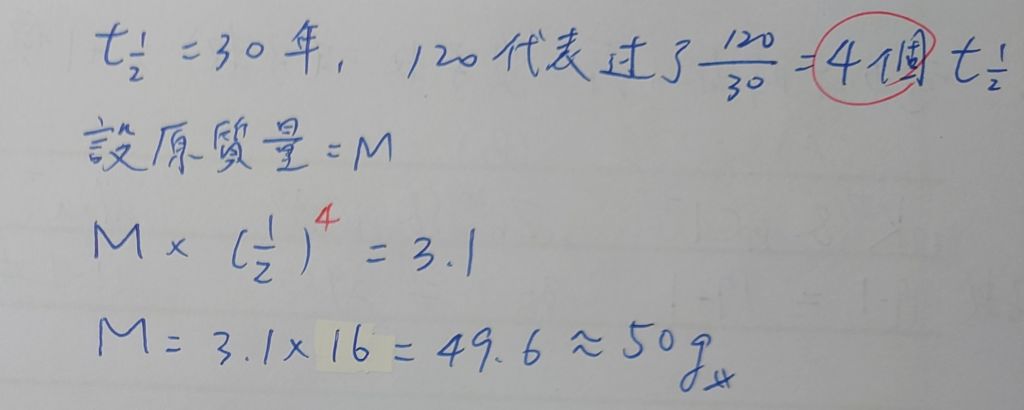 t½ = 30年, 120代表过了120/30 = 4個 t½
設原質量 = M
M × (½)⁴ = 3.1
M = 3.1 × 16 = 49.6 ≈ 50g